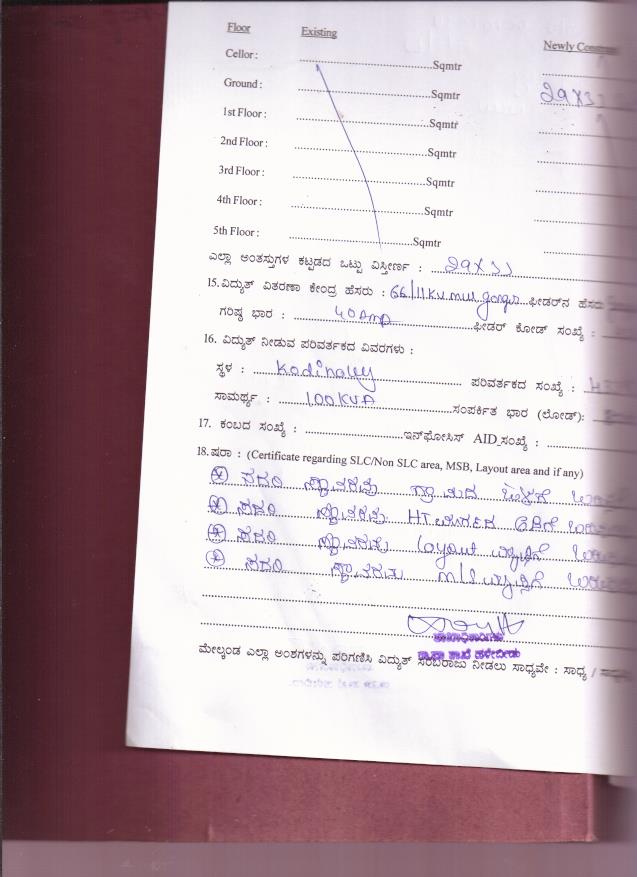 Floor Existing Newly Constr
Cellor : ........Sqmtr
Ground : ........Sqmtr 29X33
1st Floor : ........Sqmtr
2nd Floor : ........Sqmtr
3rd Floor : ........Sqmtr
4th Floor : ........Sqmtr
5th Floor : ........Sqmtr
ಎಲ್ಲಾ ಅಂತಸ್ತುಗಳ ಕಟ್ಟಡದ ಒಟ್ಟು ವಿಸ್ತೀರ್ಣ : 29X33
15. ವಿದ್ಯುತ್ ವಿತರಣಾ ಕೇಂದ್ರ ಹೆಸರು : 66/11KV ಫೀಡರ್‌ನ ಹೆಸರು
ಗರಿಷ್ಠ ಭಾರ : 40 Amp ಫೀಡರ್ ಕೋಡ್ ಸಂಖ್ಯೆ :
16. ವಿದ್ಯುತ್ ನೀಡುವ ಪರಿವರ್ತಕದ ವಿವರಗಳು :
ಸ್ಥಳ : ಪರಿವರ್ತಕದ ಸಂಖ್ಯೆ :
ಸಾಮರ್ಥ್ಯ : 100KVA ಸಂಪರ್ಕಿತ ಭಾರ (ಲೋಡ್):
17. ಕಂಬದ ಸಂಖ್ಯೆ : ........ಇನ್‌ಫೋಸಿಸ್ AID ಸಂಖ್ಯೆ :
18. ಷರಾ : (Certificate regarding SLC/Non SLC area, MSB, Layout area and if any)
ಸದರಿ ಸ್ಥಾವರವು ಗ್ರಾಮದ
ಸದರಿ ಸ್ಥಾವರವು HT ಮಾರ್ಗದ
ಸದರಿ ಸ್ಥಾವರವು Layout
ಸದರಿ ಸ್ಥಾವರವು
ಶಾಖಾಧಿಕಾರಿಗಳು
ಶಾಖೆ ಹಳೇಬೀಡು
ಮೇಲ್ಕಂಡ ಎಲ್ಲಾ ಅಂಶಗಳನ್ನು ಪರಿಗಣಿಸಿ ವಿದ್ಯುತ್ ಸರಬರಾಜು ನೀಡಲು ಸಾಧ್ಯವೇ : ಸಾಧ್ಯ /